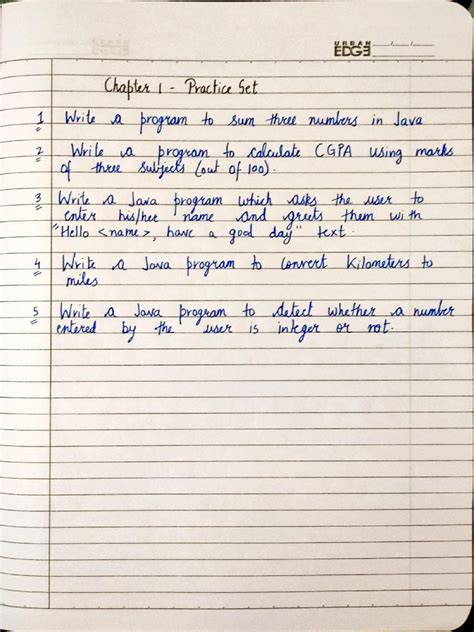 URBAN
EDGE
Chapter 1 - Practice Set
1 Write a program to sum three numbers in Java
2 Write a program to calculate CGPA using marks
of three subjects (out of 100).
3 Write a Java program which asks the user to
enter his/her name and greets them with
"Hello <name>, have a good day" text.
4 Write a Java program to convert Kilometers to
miles
5 Write a Java program to detect whether a number
entered by the user is integer or not.